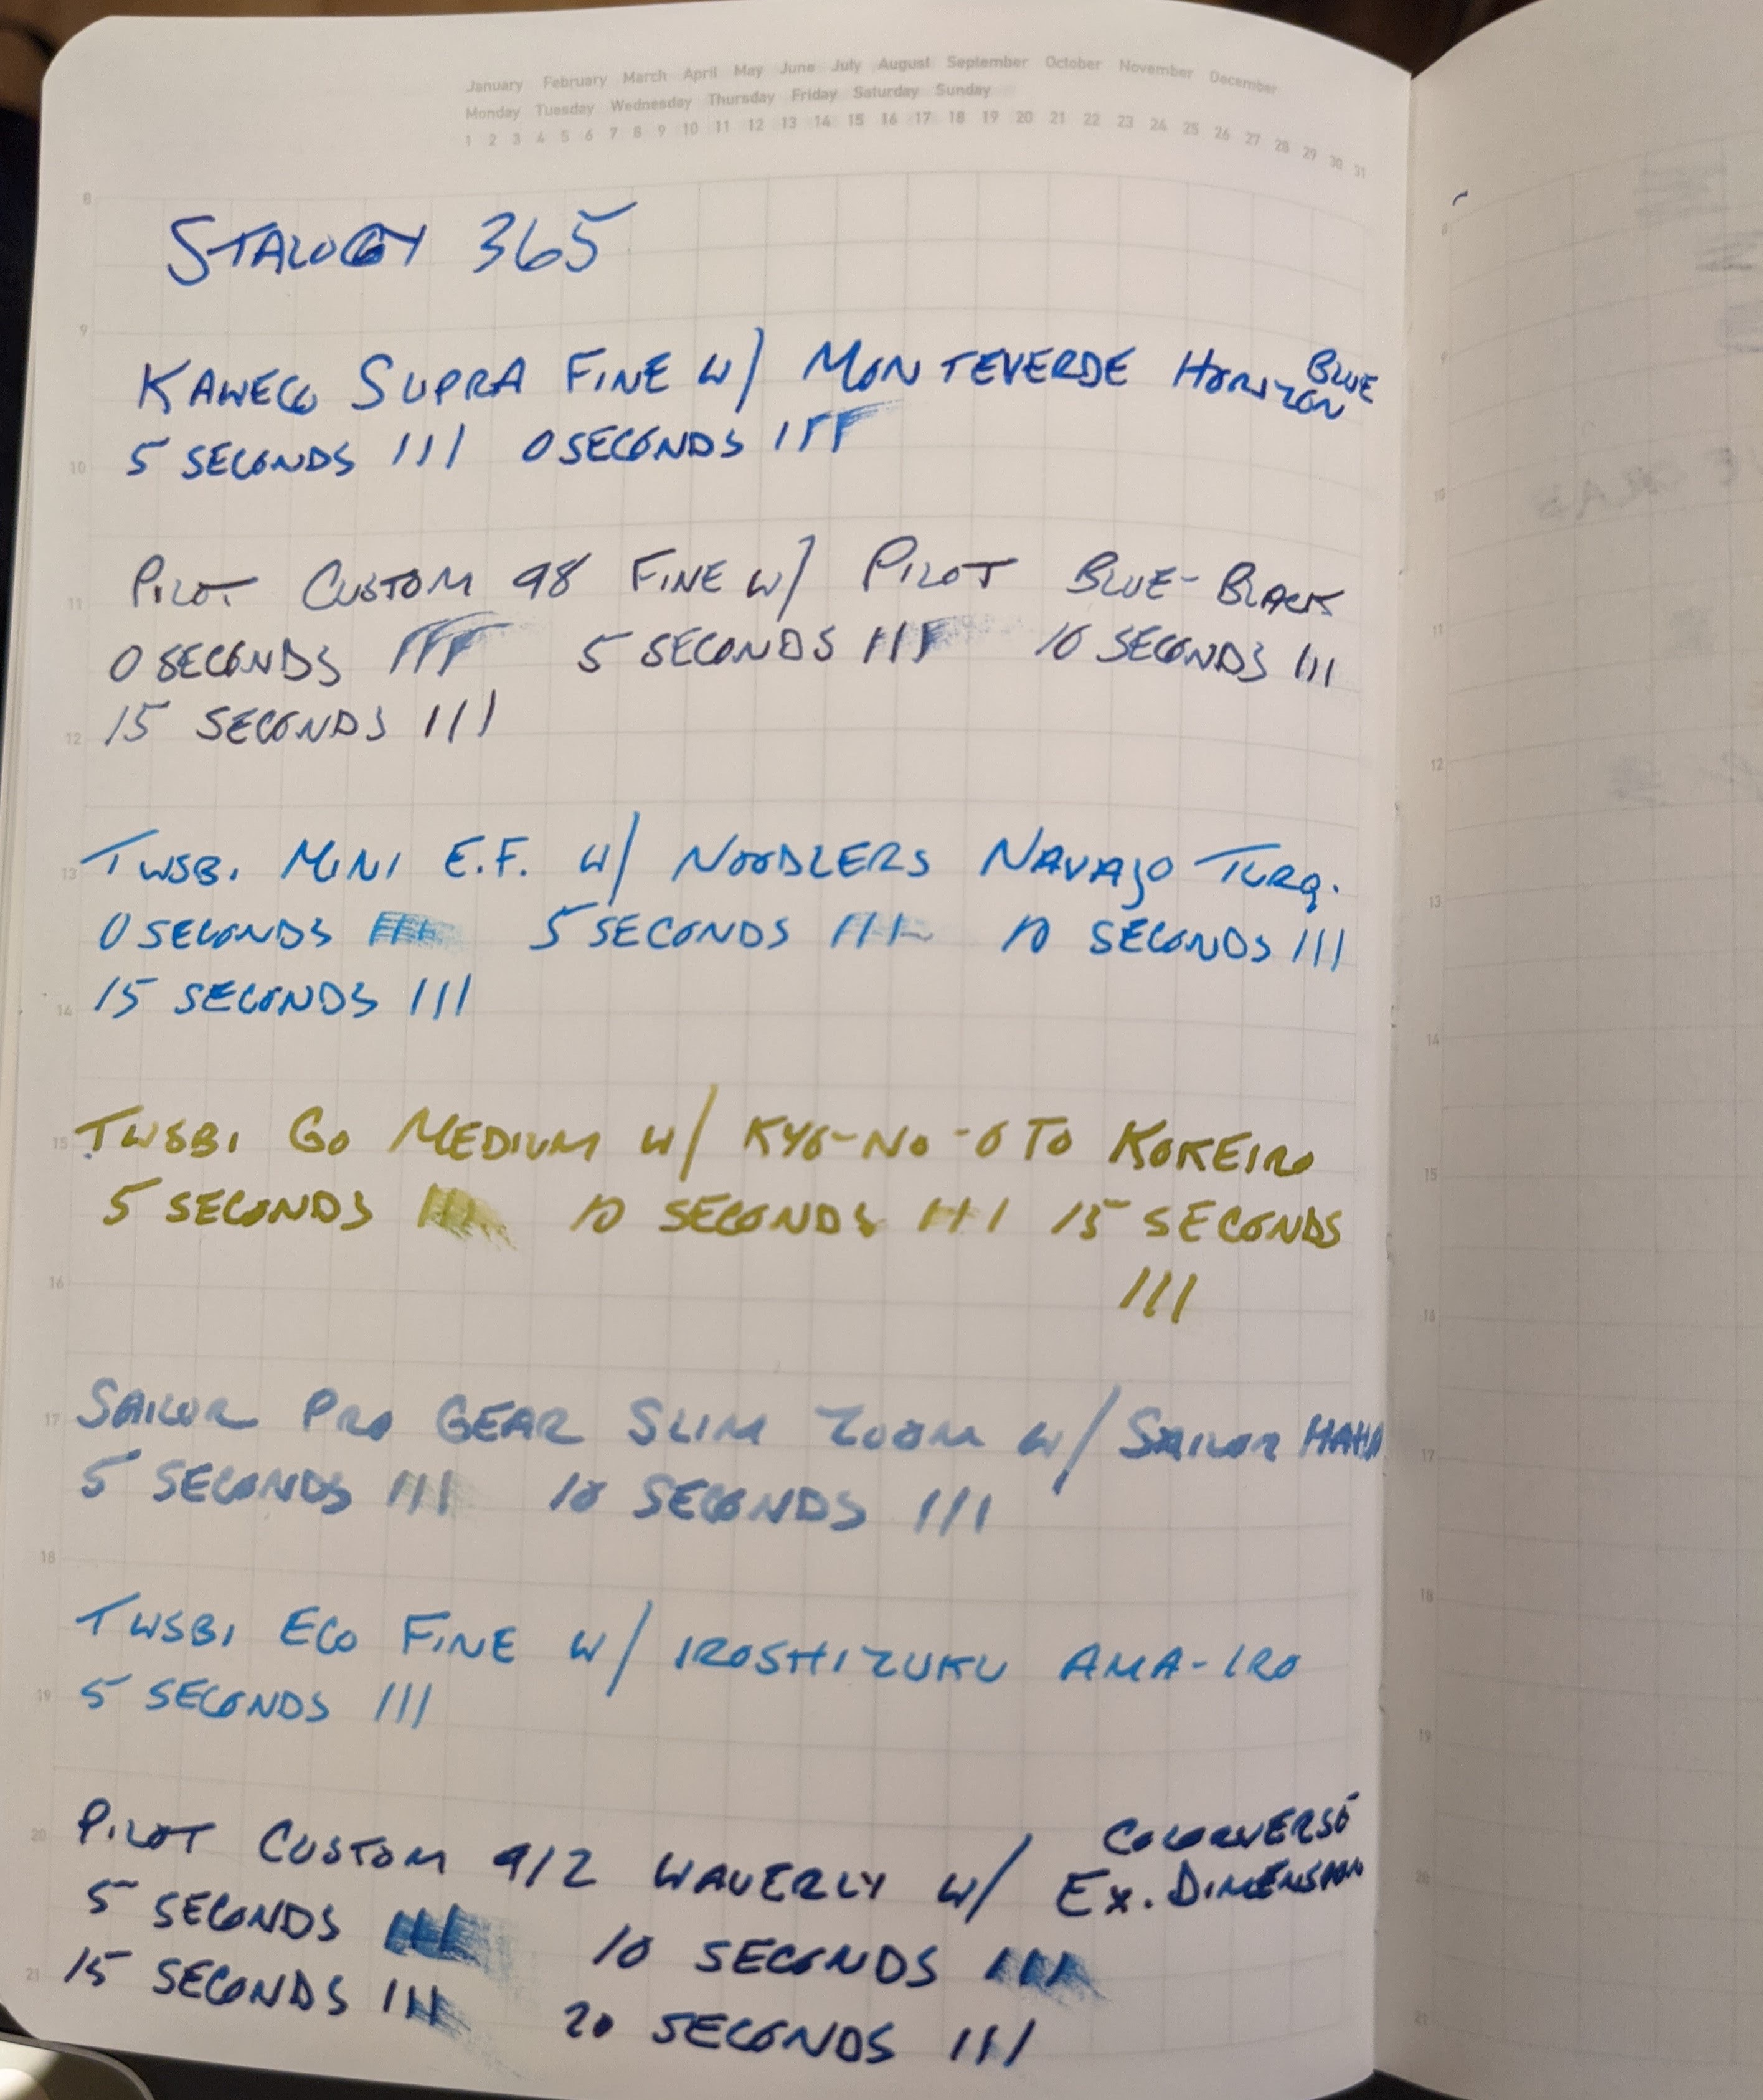 January February March April May June July August September October November December
Monday Tuesday Wednesday Thursday Friday Saturday Sunday
1 2 3 4 5 6 7 8 9 10 11 12 13 14 15 16 17 18 19 20 21 22 23 24 25 26 27 28 29 30 31
8
STALOGY 365
9
KAWECO SUPRA FINE W/ MONTEVERDE HORIZON BLUE
10 5 SECONDS III 0 SECONDS III
PILOT CUSTOM 98 FINE W/ PILOT BLUE-BLACK
11
0 SECONDS III 5 SECONDS III 10 SECONDS III
12 15 SECONDS III
13 TWSBI MINI E.F. W/ NOODLERS NAVAJO TURQ.
0 SECONDS III 5 SECONDS III 10 SECONDS III
14 15 SECONDS III
15 TWSBI GO MEDIUM W/ KYO-NO-OTO KOKEIRO
5 SECONDS III 10 SECONDS III 15 SECONDS
16 III
17 SAILOR PRO GEAR SLIM ZOOM W/ SAILOR HAHA
5 SECONDS III 10 SECONDS III
18
TWSBI ECO FINE W/ IROSHIZUKU AMA-IRO
19 5 SECONDS III
20 PILOT CUSTOM 912 WAVERLY W/ COLORVERSE
EX. DIMENSION
5 SECONDS III 10 SECONDS III
21 15 SECONDS III 20 SECONDS III
8
9
10
11
12
13
14
15
16
17
18
19
20
21